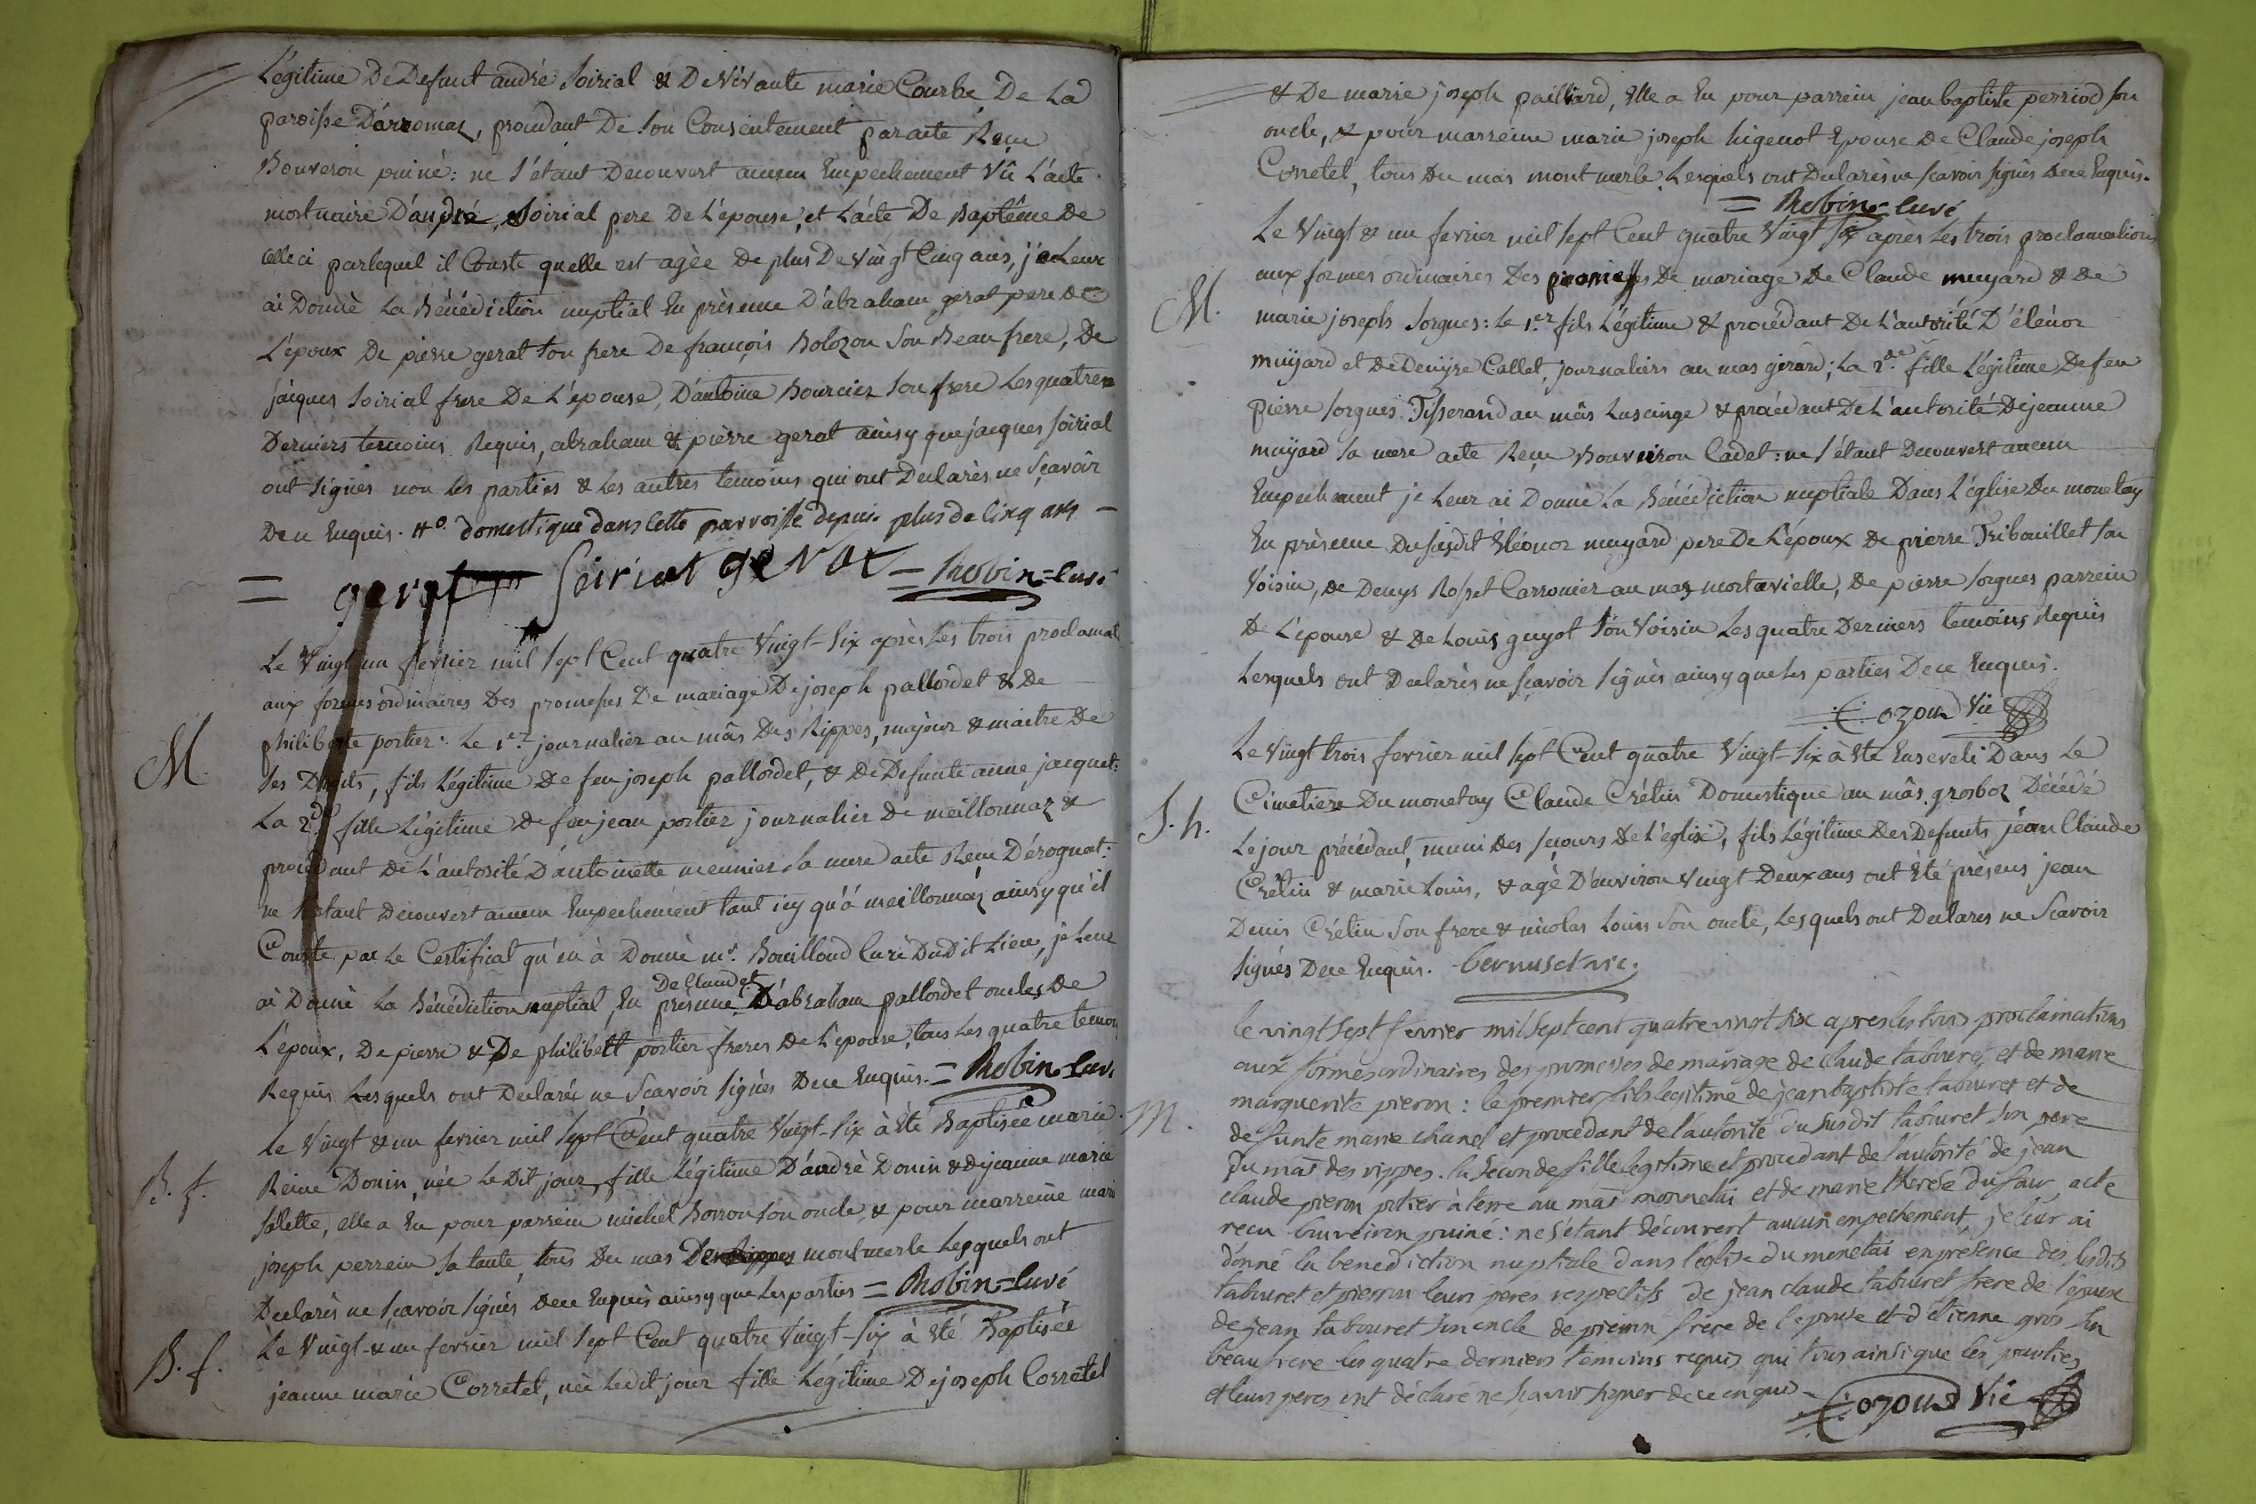 Légitime De Defunt andré Soirial & De Vivante marie Courbe De La
paroisse D'arromas, procédant De son Consentement par acte Recu
Bouveron puiné: ne s'étant Decouvert aucun Empechement Vû L'acte
mortuaire D'andré Soirial pere De L'épouse, et L'acte De Baptême De
celle ci par lequel il Conste quelle est agèe de plus De vingt Cinq ans, je Leur
ai Donnè La Bénédiction nuptial En présence D'abraham gerat pere de
L'époux De pierre gerat son frere De françois Bolozon son Beau frere, De
jacques Soirial frere De L'épouse, D'antoine Bourcier son frere Les quatre
Derniers temoins Requis, abraham & pierre gerat ainsy que jacques Soirial
ont signès non les parties & Les autres temoins qui ont Declarès ne Sçavoir
De ce Enquis. #o. domestique dans cette parroisse depuis plus de cinq ans
= gerat Soirial gerat = Robin = curé
Le Vingt un fevrier mil sept Cent quatre Vingt-Six après Les trois proclamat
aux formes ordinaires Des promesses De mariage De joseph pallordet & De
M. philiberte portier: Le 1er. journalier au mâs Des Rippes, majeur & maitre De
ses Droits, fils Légitime De feu joseph pallordet, & De Defunte anne jacquet:
La 2de. fille Légitime De feu jean portier journalier De meillonnaz &
procédant De L'autorité D'antoinette meunier sa mere acte Recu Dérognat:
ne s'etant Decouvert aucun Empechement tant icy qu'à meillonnaz ainsy qu'il
Conste par Le Certificat qu'en à Donnè mr. Bouilloud Curè Dudit Lieu, je Leur
ai Donnè La Bénédiction nuptial, En présence De Claude & D'abraham pallordet oncles De
L'époux, De pierre & De philibert portier freres De L'épouse, tous Les quatre temoin
Requis Lesquels ont Declarés ne Scavoir signès De ce Enquis. = Robin = curé
Le Vingt & un fevrier mil sept Cent quatre Vingt-Six à Eté Baptisée marie
B. f. Reine Donin, née Le Dit jour, fille Légitime D'andrè Donin & De jeanne marie
Solette, elle a Eu pour parrein michel Borron son oncle, & pour marreine marie
joseph perrein sa tante, tous Du mas montmerle Lesquels ont
Declarès ne Sçavoir signès De ce Enquis ainsy que Les parties = Robin = curé
B. f. Le Vingt & un fevrier mil sept Cent quatre Vingt-Six à Eté Baptisée
jeanne marie Corretel, née Ledit jour fille Légitime De joseph Corretel
& De marie joseph pailliard, Elle a Eu pour parrein jean baptiste perriod son
oncle, & pour marreine marie joseph higenot Epouse De Claude joseph
Corretel, tous Du mas montmerle. Lesquels ont Declarès ne scavoir signès De ce Enquis.
= Robin = curé
Le Vingt & un fevrier mil sept Cent quatre Vingt six apres Les trois proclamations
aux formes ordinaires Des promesses De mariage De Claude muyard & De
M. marie joseph Sorgues: Le 1.er fils Légitime & procédant De L'autorité D'élénor
muyard et De Denyse Callet, journaliers au mas girard; La 2.de fille Légitime De feu
pierre Sorgues Tisserand au mâs Luscinge & procédant De L'autorité De jeanne
muyard sa mere acte Recu Bouveiron Cadet: ne s'étant Decouvert aucun
Empechement je Leur ai Donnè La Bénédiction nuptiale Dans L'église Du monetay
En présence Du susdit Eléonor muyard pere De L'époux De pierre Tribouillet son
Voisin, De Denys Rosset Carronier au mas mortavielle, De pierre Sorgues parrein
De L'épouse & De Louis guyot son Voisin Les quatre Derniers temoins Requis
Lesquels ont Declarès ne sçavoir signès ainsy que Les parties De ce Enquis.
Cozon Vic
Le Vingt trois fevrier mil sept Cent quatre Vingt-Six à Eté Enseveli Dans Le
Cimetiere Du monetay Claude Crétin Domestique au mâs grosboz Décédé
S. h. Le jour précédant, muni Des secours De L'eglise, fils Légitime Des Defunts jean Claude
Crétin & marie Louis, & agé D'environ Vingt Deux ans ont Eté présens jean
Denis Crétin son frere & nicolas Louis son oncle, Lesquels ont Declarès ne Scavoir
signès De ce Enquis. bernuset vic.
le vingt sept fevrier mil sept cent quatre vingt six apres les trois proclamations
aux formes ordinaires des promesses de mariage de claude tabouret et de marie
marguerite pieron: le premier fils legitime de jean baptiste tabouret et de
M. defunte marie chanel et procedant de l'autorité du susdit tabouret son pere
du mas des rippes. la seconde fille legitime et procedant de l'autorité de jean
claude pieron potier à terre au mas monnetai et de marie therese dufour, acte
recu bouveiron puiné: ne s'étant découvert aucun empechement je leur ai
donné la benediction nuptiale dans l'eglise du monetai en présence des susdits
tabouret et pieron leurs peres respectifs de jean claude tabouret frere de l'epoux
de jean tabouret son oncle de pieron frere de l'epouse et d'etienne gros son
beau frere les quatre derniers temoins requis qui tous ainsi que les parties
et leurs peres ont déclaré ne scavoir signer de ce enquis
Cozon Vic